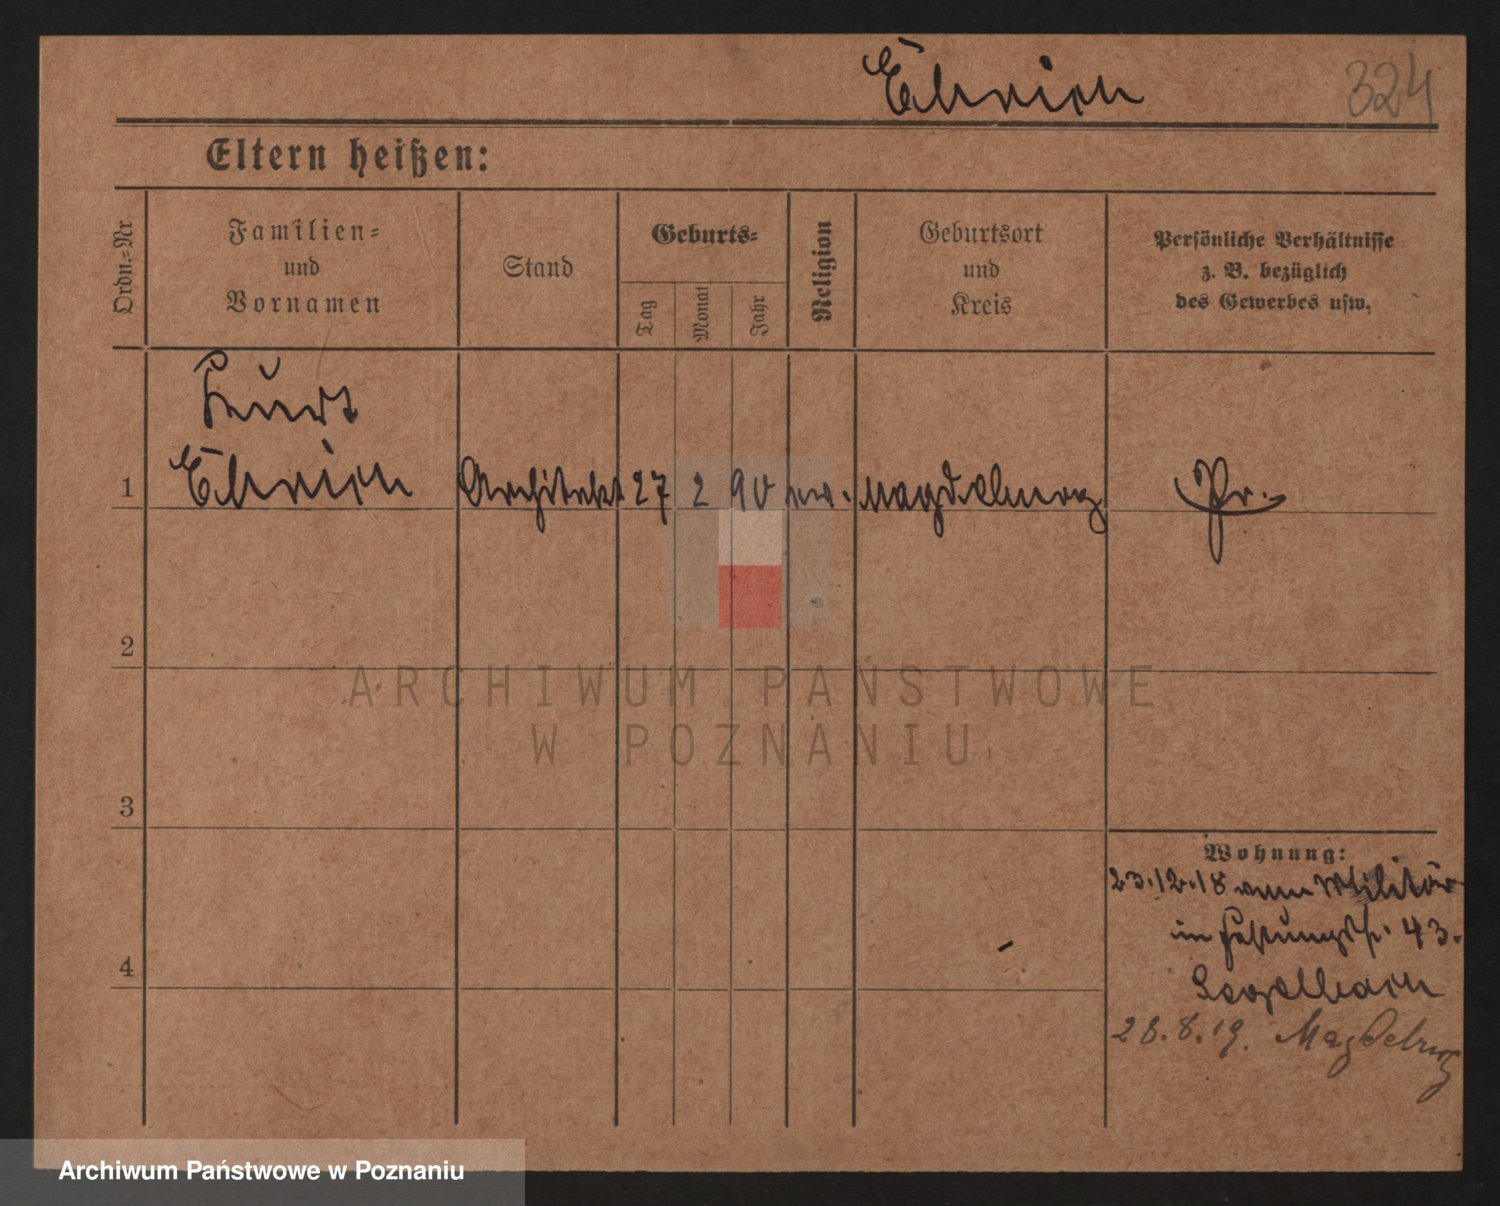 Ehrich
324
Eltern heißen:
Ordn.-Nr
Familien-
und
Vornamen
Stand
Geburts-
Tag
Monat
Jahr
Religion
Geburtsort
und
Kreis
Persönliche Verhältnisse
z. B. bezüglich
des Gewerbes usw.
Kurt
1 Ehrich Architekt 27 2 90 ev. Magdeburg Pr.
2
3
4
Wohnung:
23.12.18 vom Militär
in Festungsstr. 43.
28.8.19. Magdeburg
ARCHIWUM PAŃSTWOWE
W POZNANIU
Archiwum Państwowe w Poznaniu